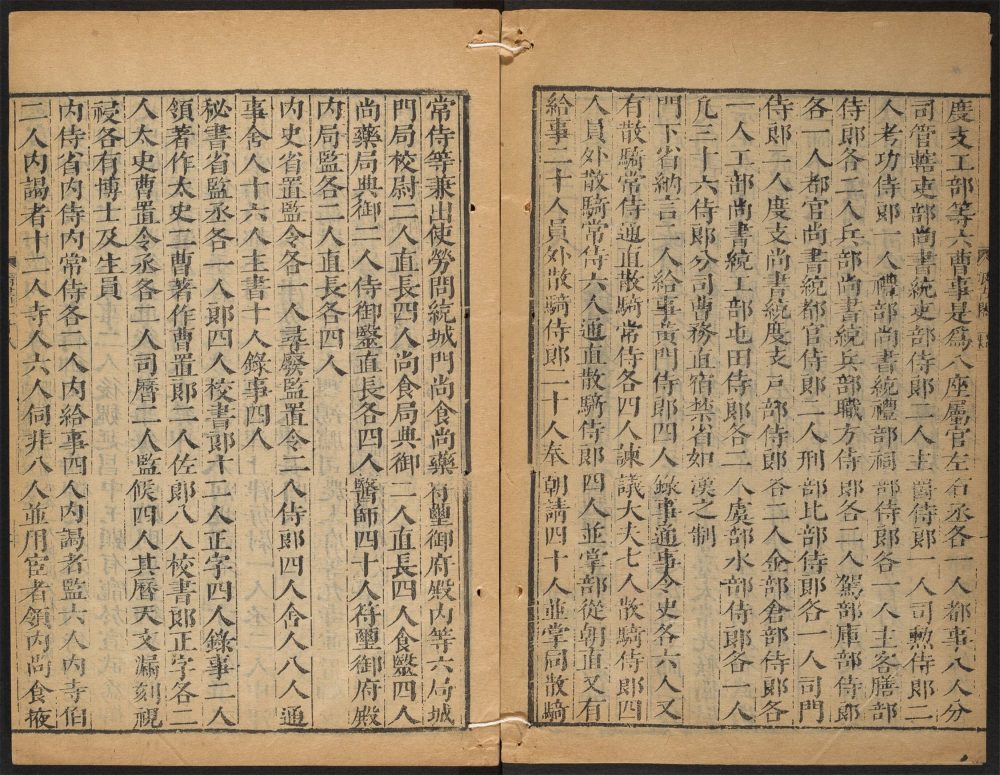 度支工部等六曹事是爲八座屬官左右丞各一人都事八人分
司管轄吏部尚書統吏部侍郎二人主爵侍郎一人司勲侍郎二
人考功侍郎一人禮部尚書統禮部祠部侍郎各一人主客膳部
侍郎各二人兵部尚書統兵部職方侍郎各二人駕部庫部侍郎
各一人都官尚書統都官侍郎二人刑部比部侍郎各一人司門
侍郎二人度支尚書統度支戸部侍郎各二人金部倉部侍郎各
一人工部尚書統工部屯田侍郎各二人虞部水部侍郎各一人
凡三十六侍郎分司曹務直宿禁省如漢之制
門下省納言二人給事黃門侍郎四人錄事通事令史各六人又
有散騎常侍通直散騎常侍各四人諫議大夫七人散騎侍郎四
人員外散騎常侍六人通直散騎侍郎四人並掌部從朝直又有
給事二十人員外散騎侍郎二十人奉朝請四十人並掌同散騎
常侍等兼出使勞問統城門尚食尚藥符璽御府殿内等六局城
門局校尉二人直長四人尚食局典御二人直長四人食醫四人
尚藥局典御二人侍御醫直長各四人醫師四十人符璽御府殿
内局監各二人直長各四人
内史省置監令各一人尋廢監置令二人侍郎四人舍人八人通
事舍人十六人主書十人錄事四人
秘書省監丞各一人郎四人校書郎十二人正字四人錄事二人
領著作太史二曹著作曹置郎二人佐郎八人校書郎正字各二
人太史曹置令丞各二人司曆二人監候四人其曆天文漏刻視
祲各有博士及生員
内侍省内侍内常侍各二人内給事四人内謁者監六人内寺伯
二人内謁者十二人寺人六人伺非八人並用宦者領内尚食掖